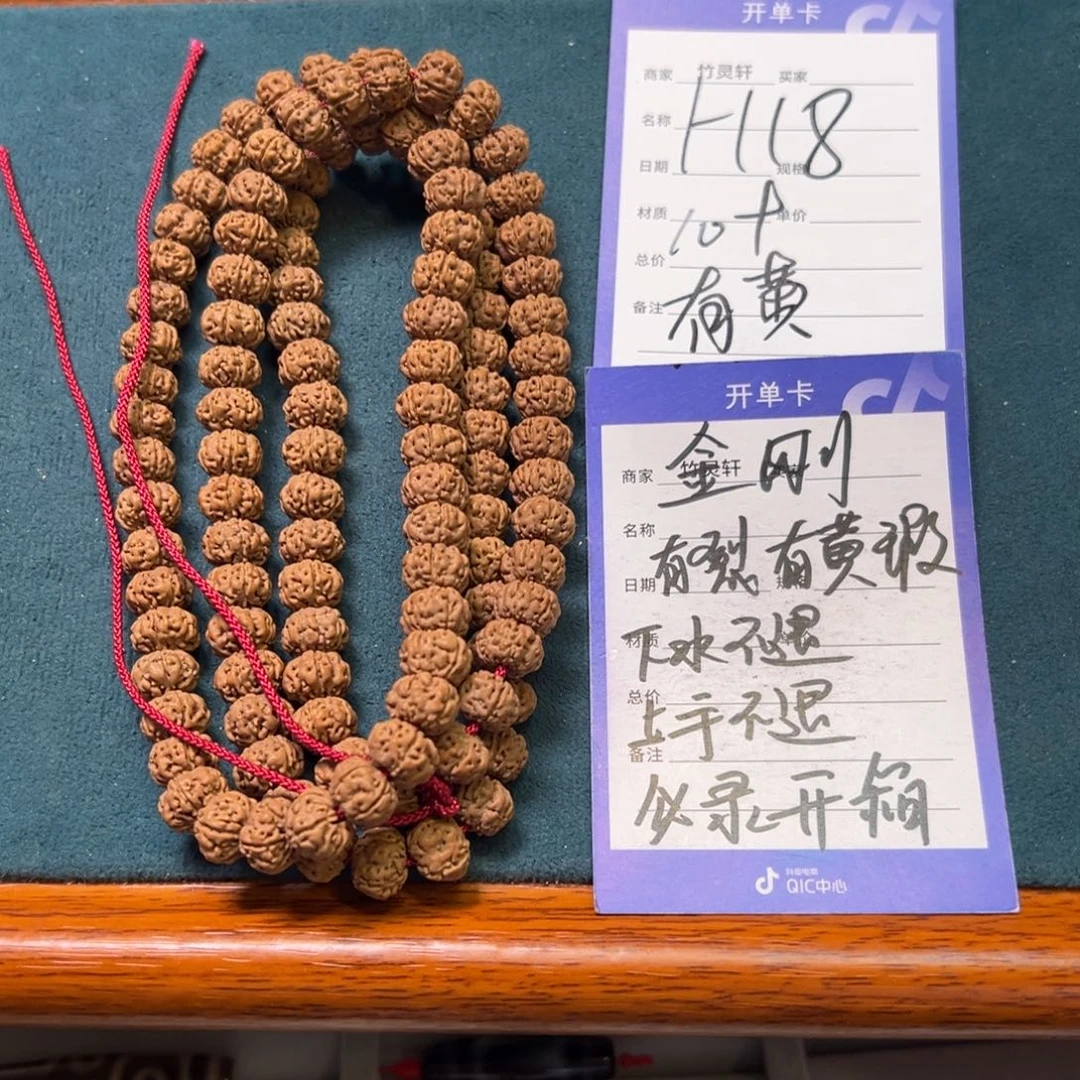 开单卡
商家 竹灵轩 买家
名称
H118
日期 规格
材质 单价
10+
总价
有黄
备注
开单卡
金刚
商家 竹灵轩
名称
有裂 有黄 瑕
日期 规格
下水不退
材质 单价
总价
上手不退
备注
必录开箱
抖音电商
QIC中心